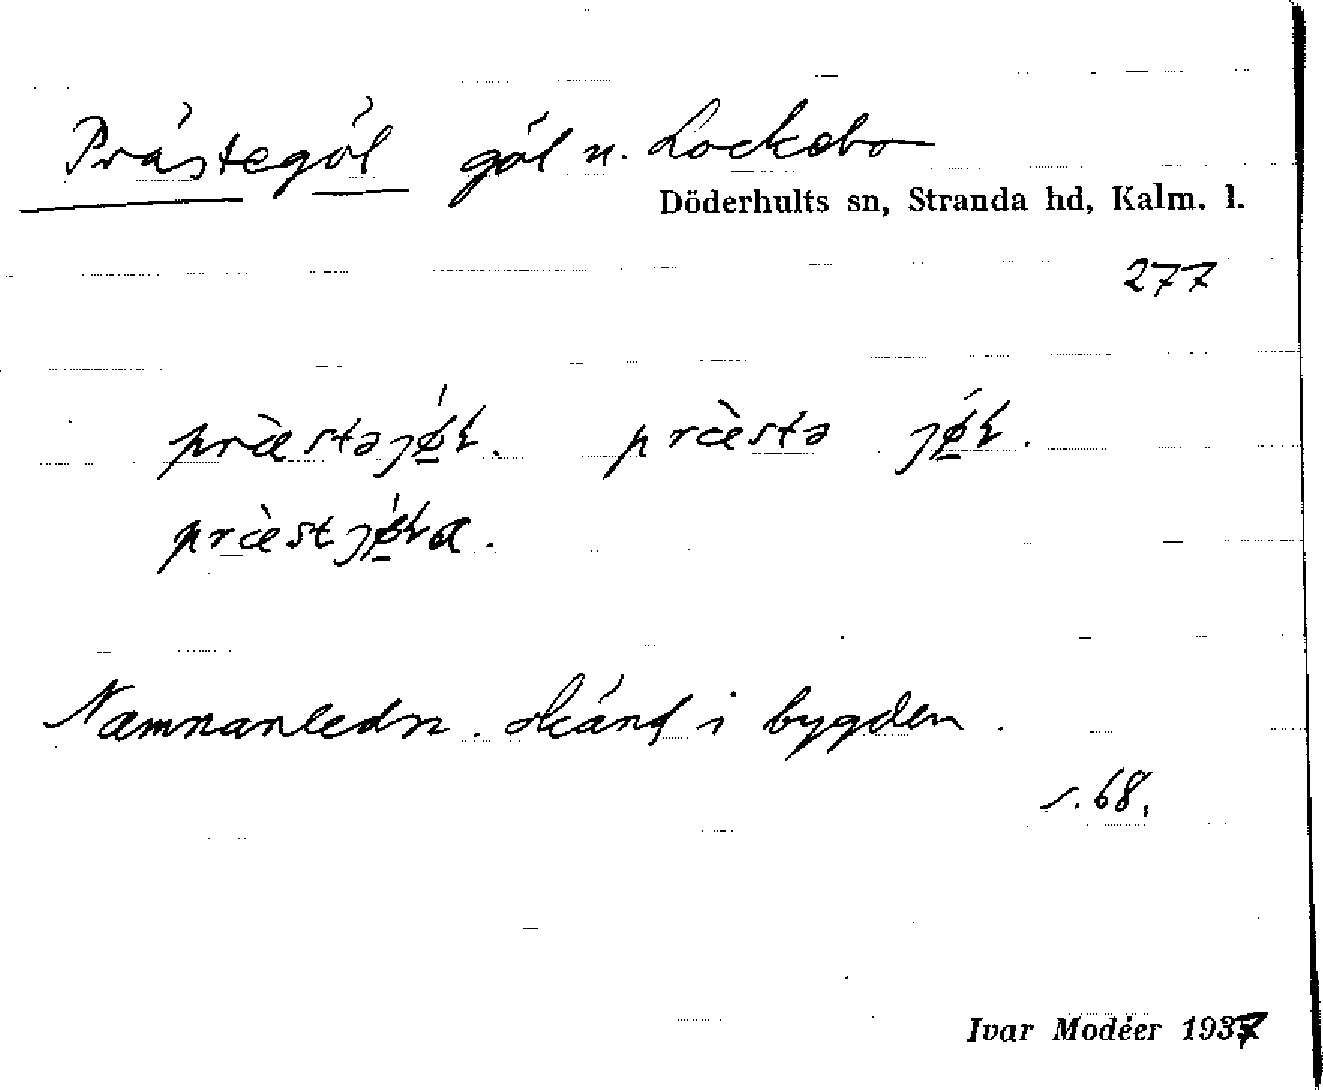 Prästegöl göl n. Lockebo
Döderhults sn, Stranda hd, Kalm. l.
277
præ̀stəjǿ̲ɫ. præ̀stə jǿ̲ɫ.
præ̀stjǿ̲ɫa.
Namnanledn. okänd i bygden.
s. 68.
Ivar Modéer 1937